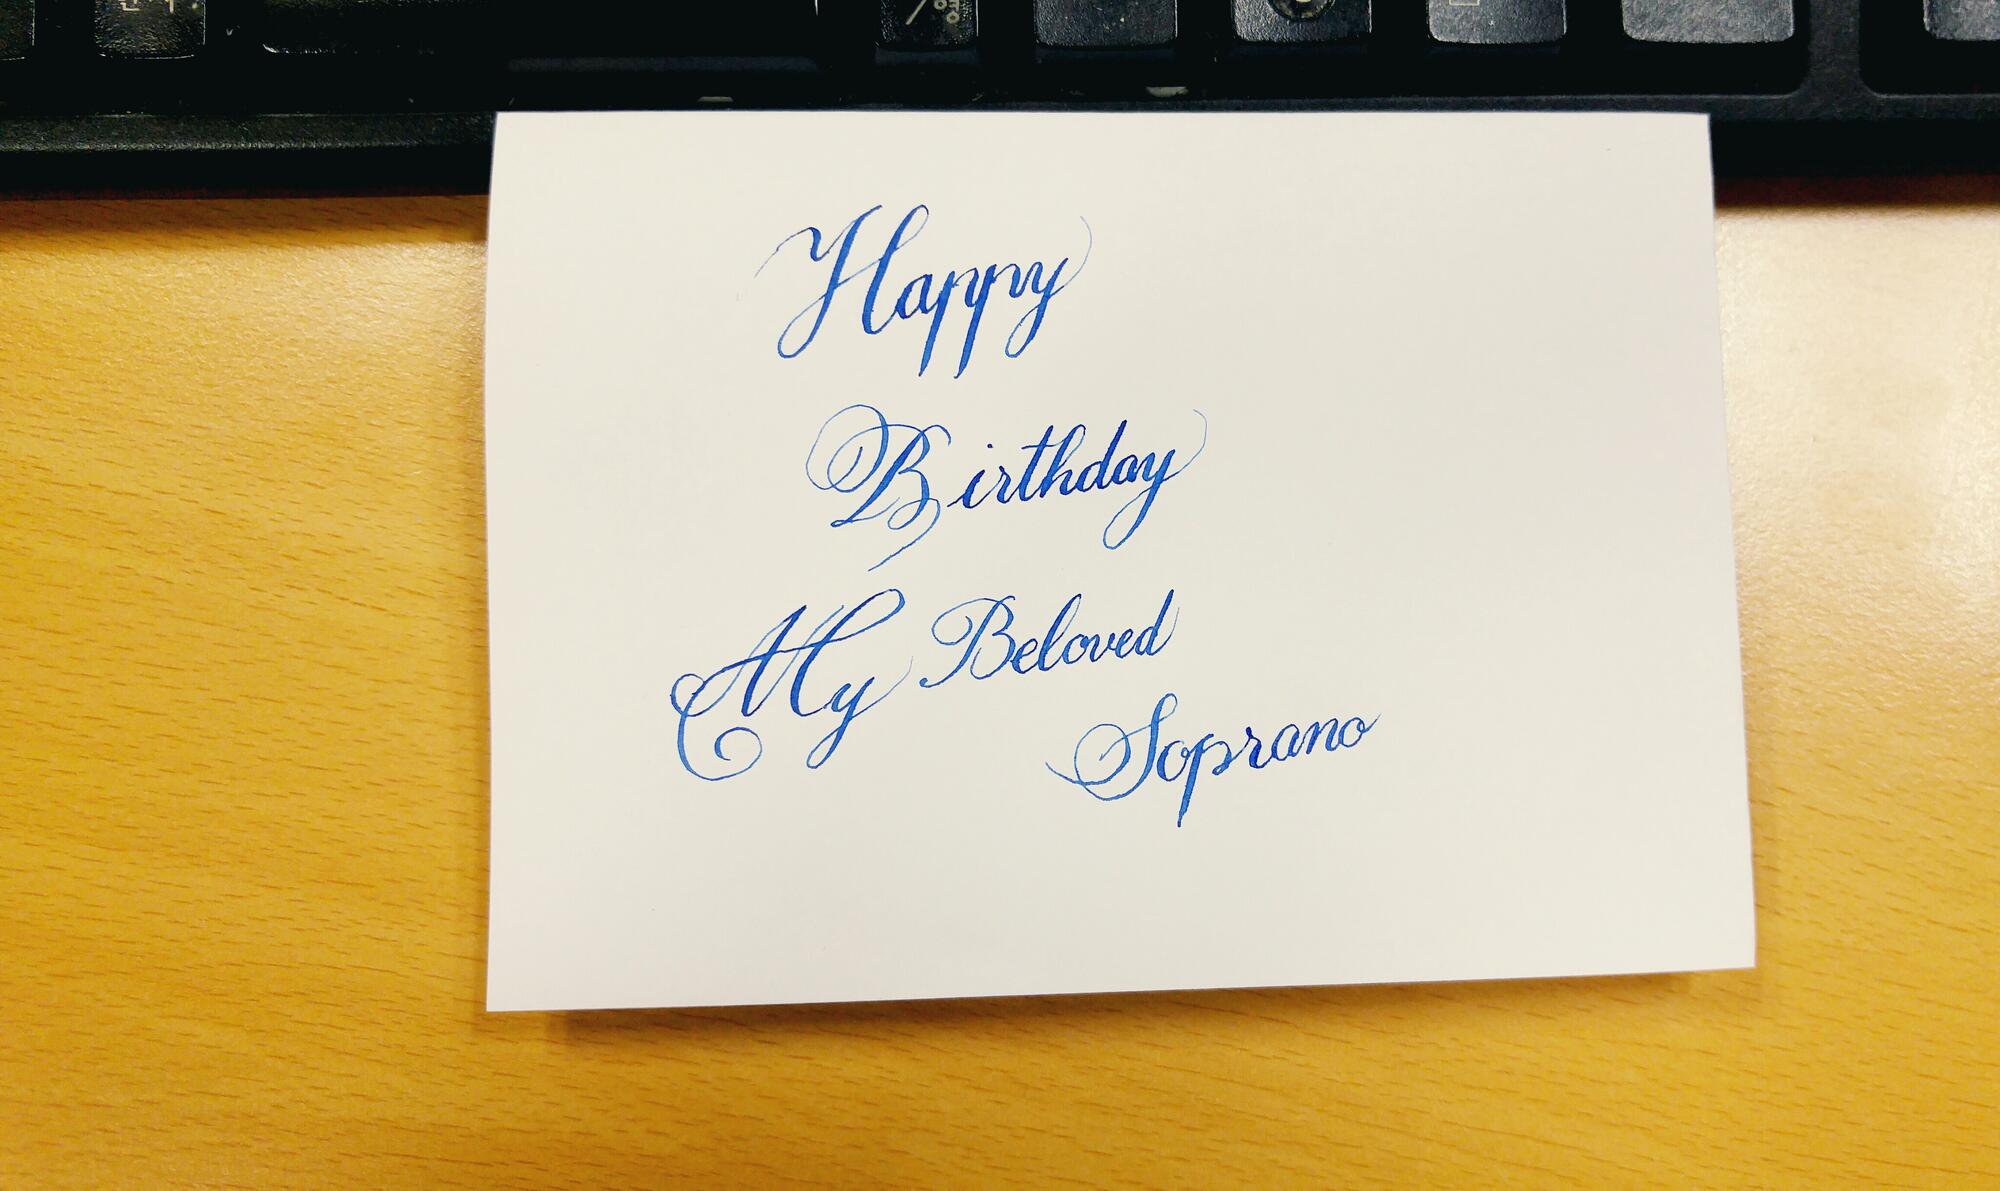 Happy
Birthday
My Beloved
Soprano